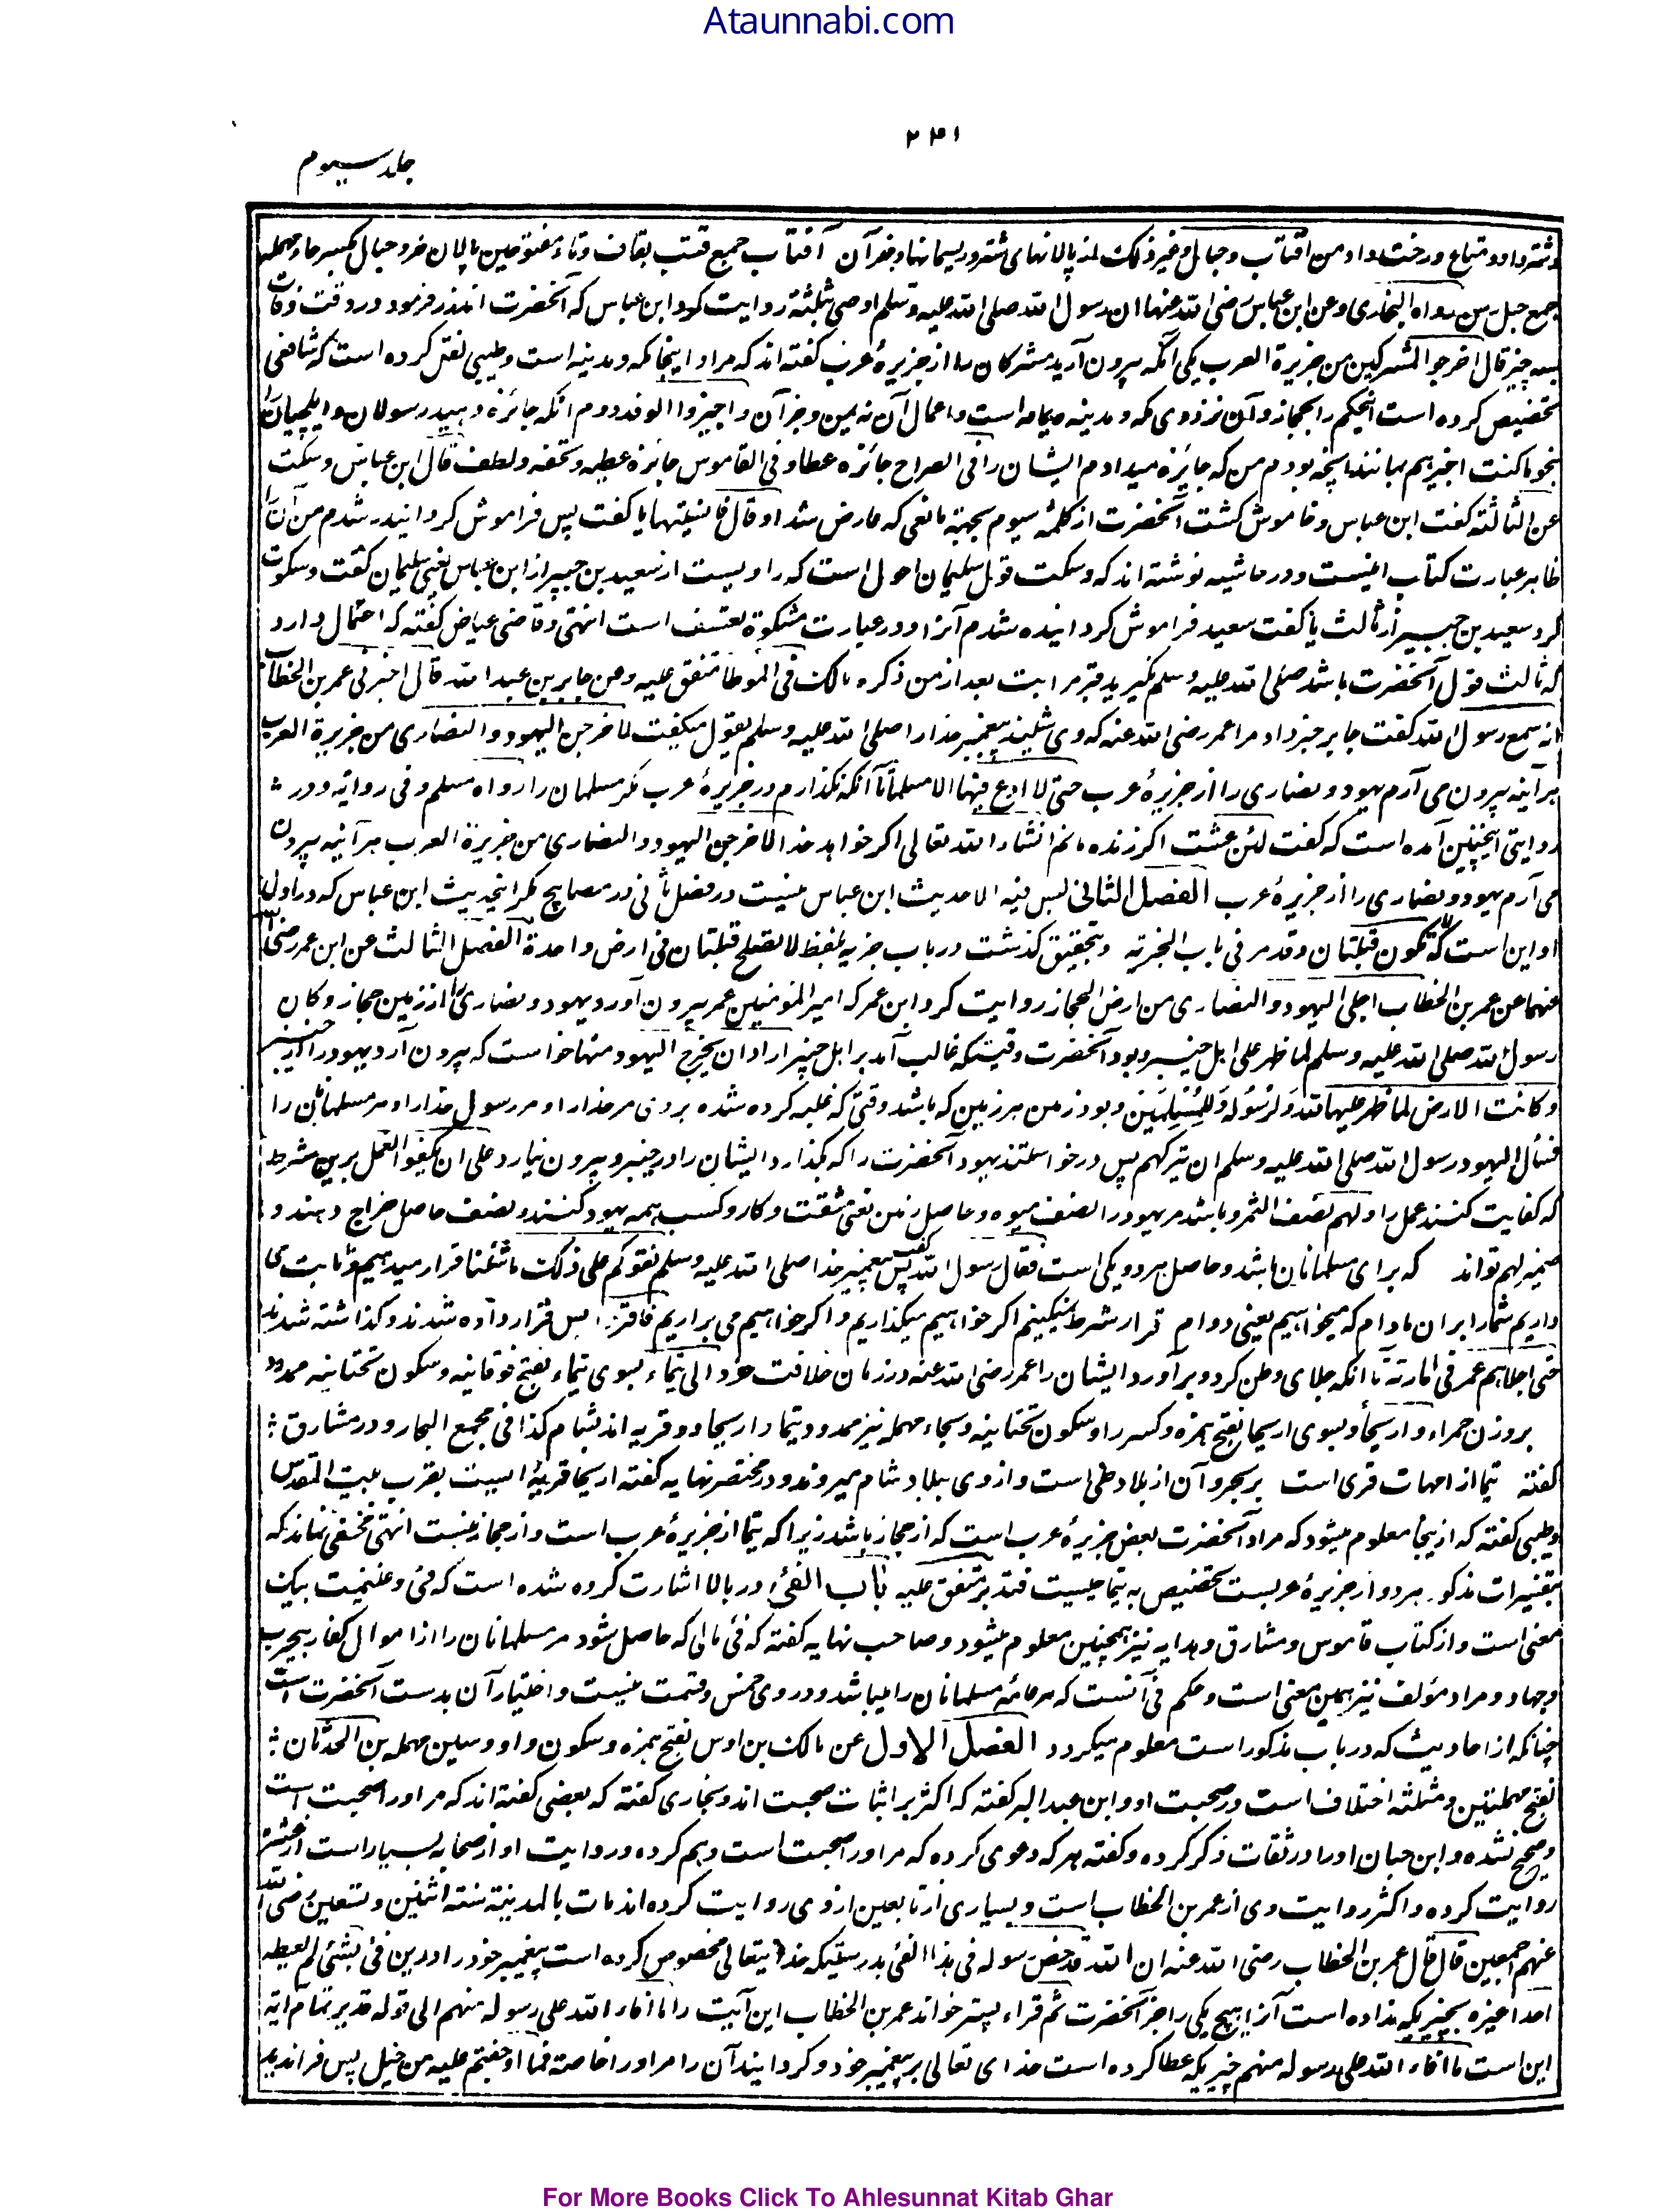 Ataunnabi.com
۲۴۱
جلد سیوم
و شتر داد و متاع و رخت داد من اقتاب و حبال و غیر ذلک از پالانهای شتر و ریسمانها و جز آن اقتاب جمع قتب بقاف و تاء مفتوحین پالان خر و حبال بکسر حاء مهمله
جمع حبل رسن رواه البخاری وعن ابن عباس رضی الله عنهما ان رسول الله صلی الله علیه وسلم اوصی بثلثة روایت کرد ابن عباس که آنحضرت اندرز فرمود در وقت وفات
بسه چیز قال اخرجوا المشرکین من جزیرة العرب یکی آنکه بیرون آرید مشرکان را از جزیرهٔ عرب گفته اند که مراد اینجا مکه و مدینه است و طیبی نقل کرده است که شافعی
تخصیص کرده است این حکم را بحجاز و آن نزد وی مکه و مدینه و یمامه است و اعمال آن نه یمن و جز آن و اجیزوا الوفد دوم آنکه جائزه دهید رسولان و ایلچیان را
بنحو ما کنت اجیزهم بمانند آنچه بودم من که جائزه میدادم ایشان را فی الصراح جائزه عطا و فی القاموس جائزه عطیه و تحفه و لطف قال ابن عباس و سکت
عن الثالثة گفت ابن عباس و خاموش گشت آنحضرت از کلمهٔ سیوم بجهة مانعی که عارض شد او قال فانسیتها یا گفت پس فراموش گردانیده شدم من آن را
ظاهر عبارت کتاب اینست و در حاشیه نوشته اند که و سکت قول سلیمان احول است که راویست از سعید بن جبیر از ابن عباس یعنی سلیمان گفت و سکوت
کرد سعید بن جبیر از ثالث یا گفت سعید فراموش گردانیده شدم آنرا و در عبارت مشکوة تعسف است انتهی و قاضی عیاض گفته که احتمال دارد
که ثالث قول آنحضرت باشد صلی الله علیه وسلم نگیرید قبر مرا بت بعد از من ذکره مالک فی الموطا متفق علیه وعن جابر بن عبد الله قال اخبرنی عمر بن الخطاب
انه سمع رسول الله گفت جابر خبر داد مرا عمر رضی الله عنه که وی شنید پیغمبر خدا را صلی الله علیه وسلم یقول میگفت لاخرجن الیهود و النصاری من جزیرة العرب
هر آئینه بیرون می آرم یهود و نصاری را از جزیرهٔ عرب حتی لا ادع فیها الا مسلما تا آنکه نگذارم در جزیرهٔ عرب مگر مسلمان را رواه مسلم و فی روایة و در
روایتی اینچنین آمده است که گفت لئن عشت اگر زنده مانم انشاء الله تعالی اگر خواهد خدا لاخرجن الیهود و النصاری من جزیرة العرب هر آئینه بیرون
می آرم یهود و نصاری را از جزیرهٔ عرب الفصل الثانی لیس فیه الا حدیث ابن عباس نیست در فصل ثانی در مصابیح مگر این حدیث ابن عباس که در اول
او این است که لا تکون قبلتان و قد مر فی باب الجزیة و بتحقیق گذشت در باب جزیه بلفظ لا تصلح قبلتان فی ارض واحدة الفصل الثالث عن ابن عمر رضی الله
عنهما ان عمر بن الخطاب اجلی الیهود و النصاری من ارض الحجاز روایت کرد ابن عمر که امیر المؤمنین عمر بیرون آورد یهود و نصاری را از زمین حجاز و کان
رسول الله صلی الله علیه وسلم لما ظهر علی اهل خیبر و بود آنحضرت وقتیکه غالب آمد بر اهل خیبر اراد ان یخرج الیهود منها خواست که بیرون آرد یهود را از خیبر
و کانت الارض لما ظهر علیها لله و لرسوله و للمسلمین و بود زمین هر زمین که باشد وقتی که غلبه کرده شده بر وی مر خدا را و مر رسول خدا را و مر مسلمانان را
فسأل الیهود رسول الله صلی الله علیه وسلم ان یترکهم پس درخواستند یهود آنحضرت را که بگذارد ایشان را در خیبر و بیرون نیارد علی ان یکفوا العمل برین شرط
که کفایت کنند عمل را و لهم نصف الثمر و باشد مر یهود را نصف میوه و حاصل زمین یعنی مشقت و کار و کسب همه یهود کنند و نصف حاصل خراج دهند و
ضمیر لهم تواند که برای مسلمانان باشد و حاصل هر دو یکی است فقال رسول الله پس گفت پیغمبر خدا صلی الله علیه وسلم نقرکم علی ذلک ما شئنا قرار میدهیم و ثابت می
داریم شما را بران مادام که میخواهیم یعنی دوام قرار شرط نمیکنیم اگر خواهیم میگذاریم و اگر خواهیم می براریم فاقروا پس قرار داده شدند و گذاشته شدند
حتی اجلاهم عمر فی امارته تا آنکه جلای وطن کرد و برآورد ایشان را عمر رضی الله عنه در زمان خلافت خود الی تیماء بسوی تیماء بفتح فوقانیه و سکون تحتانیه ممدود
بر وزن حمراء و اریحاء و بسوی اریحا بفتح همزه و کسر را و سکون تحتانیه و بحاء مهمله نیز ممدود تیما و اریحا دو قریه اند بشام کذا فی مجمع البحار و در مشارق
گفته تیما از امهات قری است بر بحر و آن از بلاد طی است و از وی ببلاد شام میروند و در مختصر نهایه گفته اریحا قریهٔ ایست بقرب بیت المقدس
و طیبی گفته که از ینجا معلوم میشود که مراد آنحضرت بعض جزیرهٔ عرب است که از حجاز باشد زیرا که تیما از جزیرهٔ عرب است و از حجاز نیست انتهی مخفی نماند که
بتفسیرات مذکور هر دو از جزیرهٔ عربست تخصیص به تیما چیست فتدبر متفق علیه باب الفیء در بالا اشارت کرده شده است که فیء و غنیمت بیک
معنی است و از کتاب قاموس و مشارق و هدایه نیز همچنین معلوم میشود و صاحب نهایه گفته که فیء مالی که حاصل شود مر مسلمانان را از اموال کفار بیحرب
و جهاد و مراد مؤلف نیز همین معنی است و حکم فیء آنست که مر عامهٔ مسلمانان را میباشد و در وی خمس و قسمت نیست و اختیار آن بدست آنحضرت است
چنانکه از احادیث که در باب مذکور است معلوم میگردد الفصل الاول عن مالک بن اوس بفتح همزه و سکون واو و سین مهمله بن الحدثان
بفتح مهملتین و مثلثه اختلاف است در صحبت او و ابن عبد البر گفته که اکثر بر اثبات صحبت اند و بخاری گفته که بعضی گفته اند که مر او را صحبت است
و صحیح نشده و ابن حبان او را در ثقات ذکر کرده و گفته هر که دعوی کرده که مر او را صحبت است وهم کرده و روایت او از صحابه بسیار است از عشره
روایت کرده و اکثر روایت وی از عمر بن الخطاب است و بسیاری از تابعین از وی روایت کرده اند مات بالمدینة سنة اثنین و تسعین رضی الله
عنهم اجمعین قال قال عمر بن الخطاب رضی الله عنه ان الله قد خص رسوله فی هذا الفیء بدرستیکه خدا یتعالی مخصوص کرده است پیغمبر خود را درین فیء بشیء لم یعطه
احدا غیره بچیزیکه نداده است آنرا هیچ یکی را جز آنحضرت ثم قراء پستر خواند عمر بن الخطاب این آیت را ما افاء الله علی رسوله منهم الی قوله قدیر تمام آیه
این است ما افاء الله علی رسوله منهم چیزیکه عطا کرده است خدای تعالی بر پیغمبر خود و گردانید آن را مر او را خاصة فما اوجفتم علیه من خیل پس نراندید
For More Books Click To Ahlesunnat Kitab Ghar